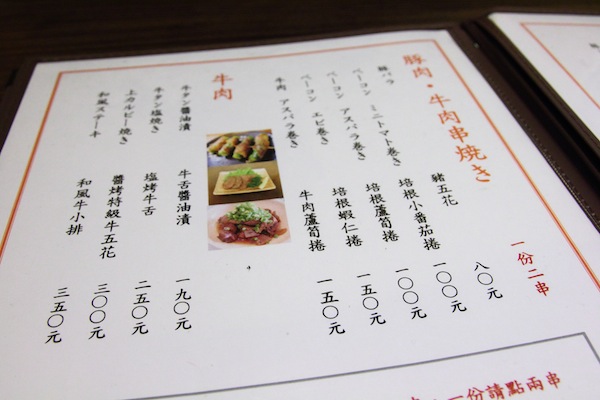 豚肉・牛肉串焼き
一份二串
豚バラ 豬五花 八〇元
ベーコン ミニトマト巻き 培根小番茄捲 一〇〇元
ベーコン アスパラ巻き 培根蘆筍捲 一〇〇元
ベーコン エビ巻き 培根蝦仁捲 一五〇元
牛肉 アスパラ巻き 牛肉蘆筍捲 一五〇元
牛肉
牛タン醬油漬 牛舌醬油漬 一九〇元
牛タン塩焼き 塩烤牛舌 二五〇元
上カルビー焼き 醬烤特級牛五花 三〇〇元
和風ステーキ 和風牛小排 三五〇元
一份請點兩串